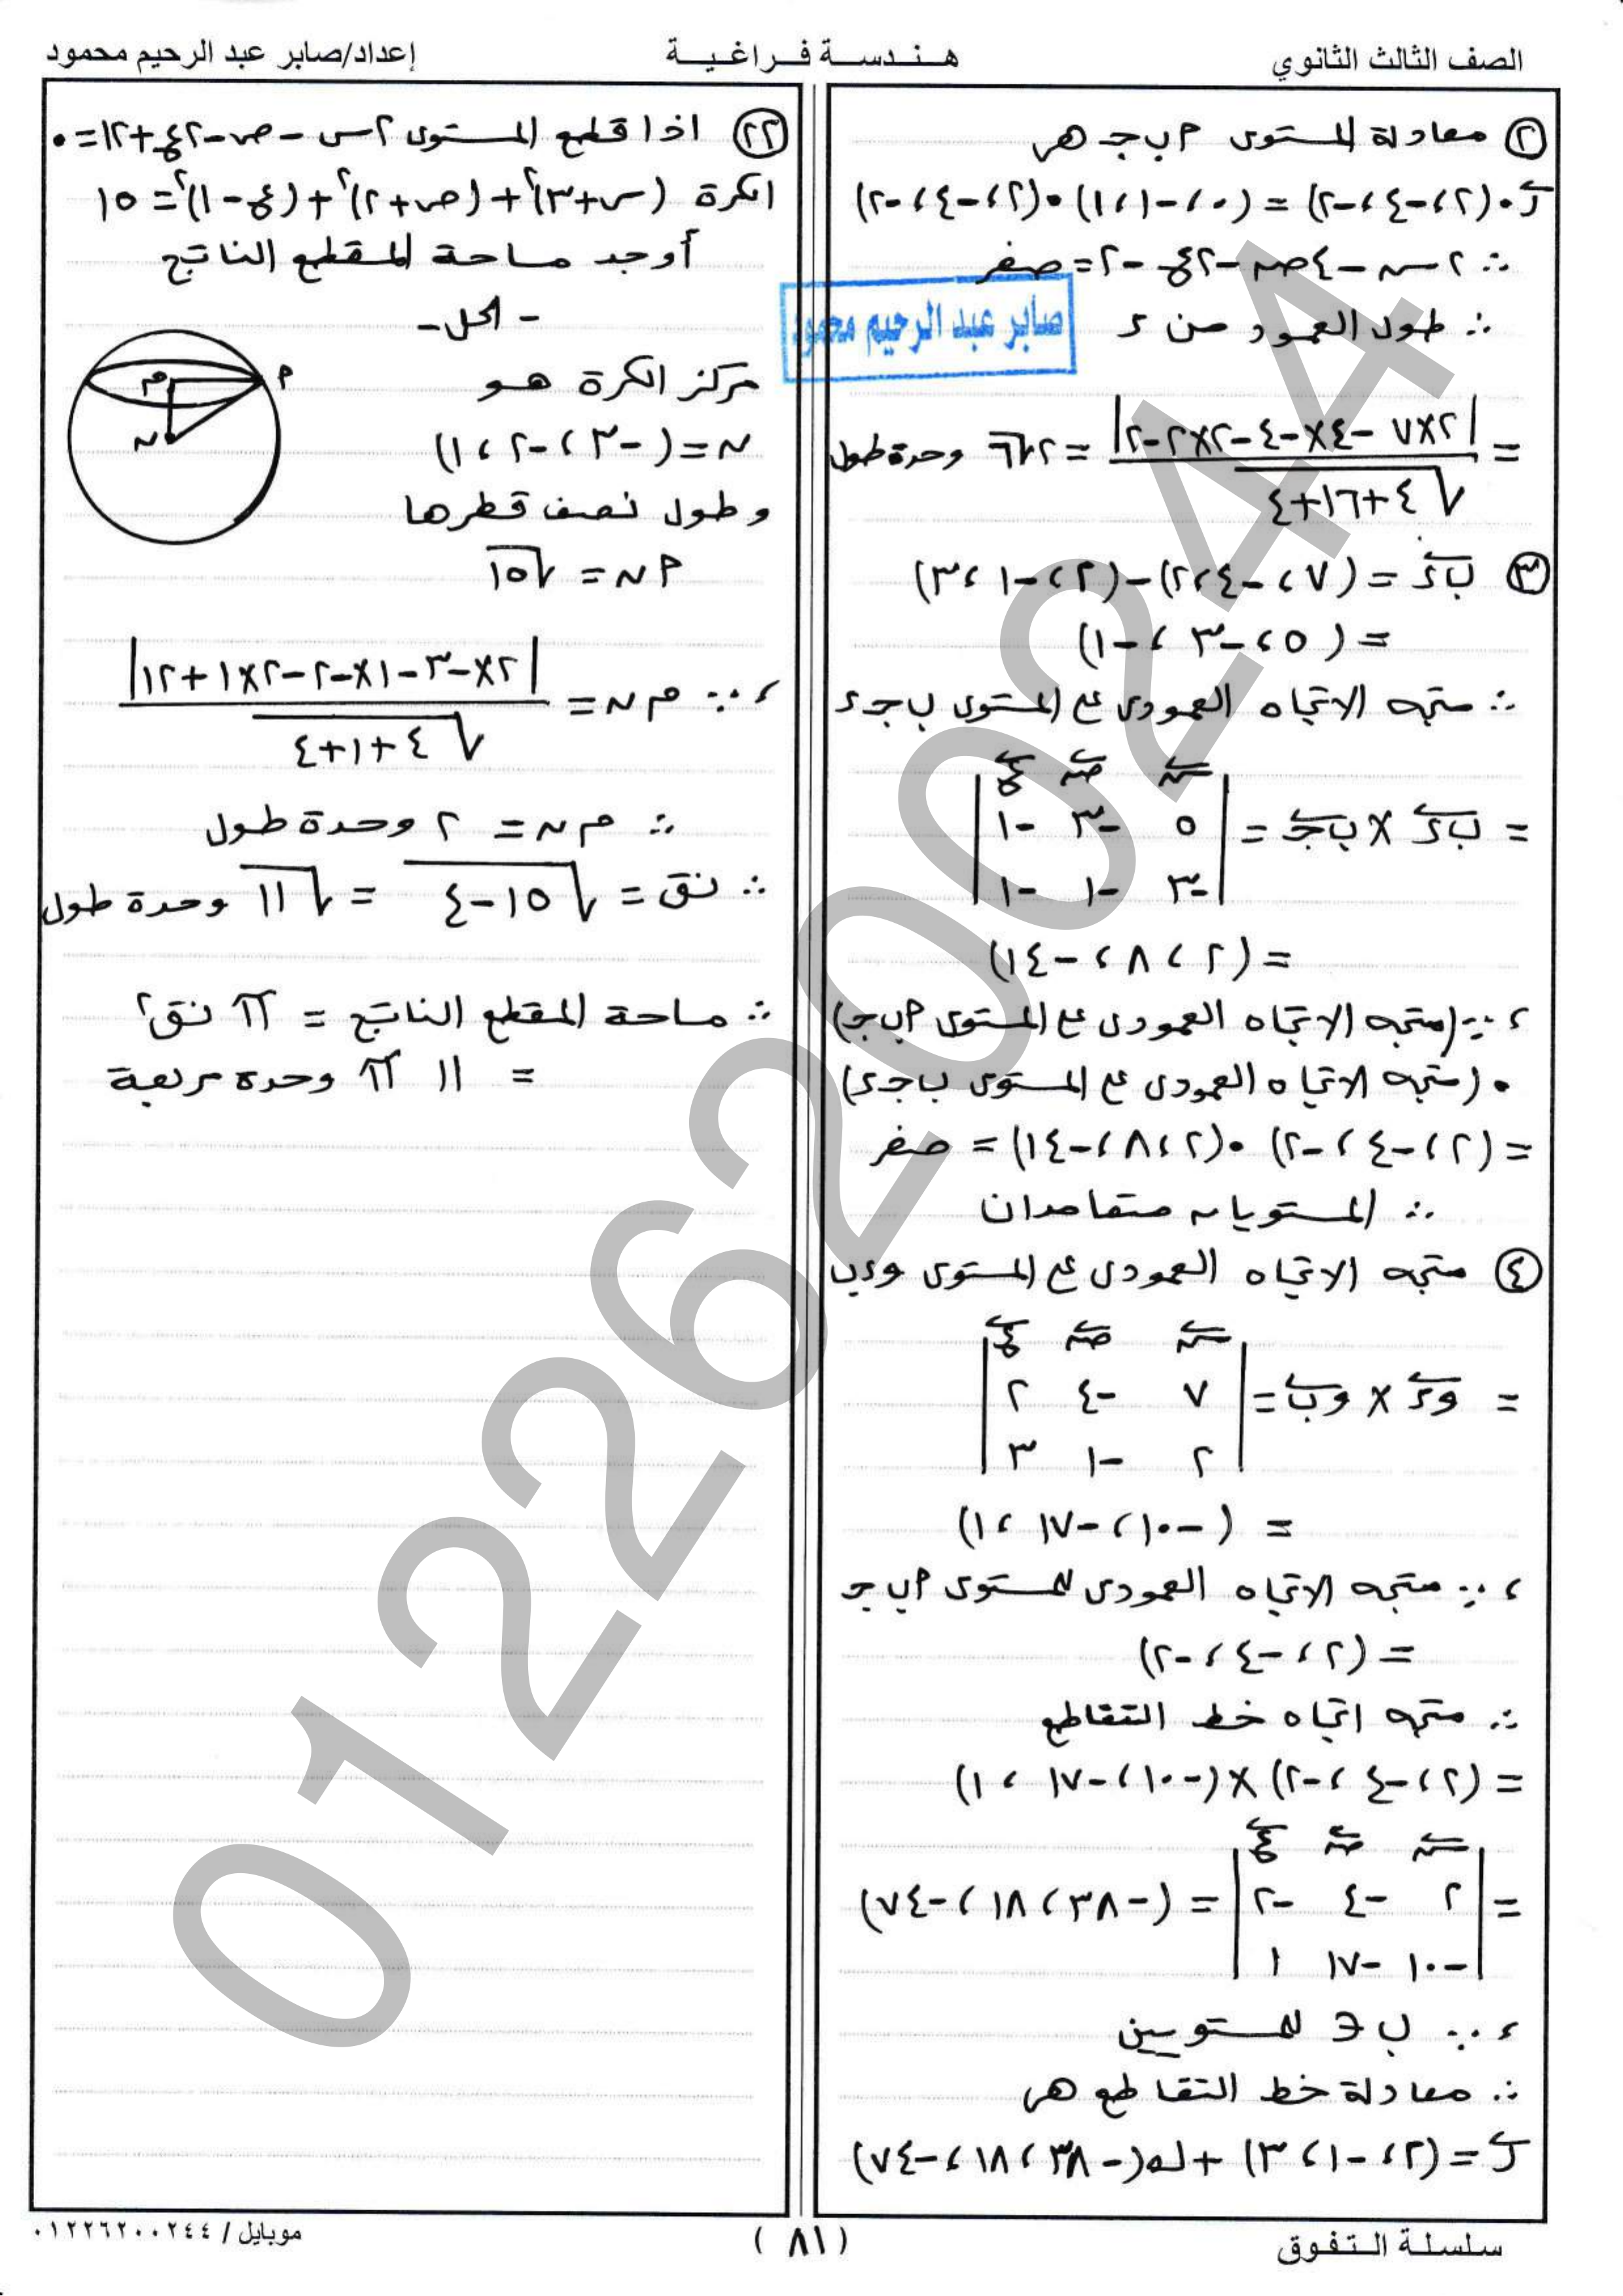 الصف الثالث الثانوي
هـنـدسـة فـراغـيـة
إعداد/صابر عبد الرحيم محمود
٢ معادلة المستوى ٢ ب جـ هى
ر • (٢ ، -٤ ، -٢) = (٠ ، -١ ، ١) • (٢ ، -٤ ، -٢)
∴ ٢س - ٤ص - ٢ع - ٢ = صفر
صابر عبد الرحيم محمود
∴ طول العمود من ء
= |٢×٧ - ٤×-٤ - ٢×٢ - ٢| / √(٤+١٦+٤) = ٢√٦ وحدة طول
٣ ب ء = (٧ ، -٤ ، ٢) - (٢ ، -١ ، ٣)
= (٥ ، -٣ ، -١)
∴ متجه الاتجاه العمودى على المستوى ب جـ ء
= ب ء × ب جـ = | س ص ع
٥ -٣ -١
-٣ -١ -١ |
= (٢ ، ٨ ، -١٤)
، ∵ (متجه الاتجاه العمودى على المستوى ٢ ب جـ)
• (متجه الاتجاه العمودى على المستوى ب جـ ء)
= (٢ ، -٤ ، -٢) • (٢ ، ٨ ، -١٤) = صفر
∴ المستويان متعامدان
٤ متجه الاتجاه العمودى على المستوى و ء ب
= و ء × و ب = | س ص ع
٧ -٤ ٢
٢ -١ ٣ |
= (-١٠ ، -١٧ ، ١)
، ∵ متجه الاتجاه العمودى للمستوى ٢ ب جـ
= (٢ ، -٤ ، -٢)
∴ متجه اتجاه خط التقاطع
= (٢ ، -٤ ، -٢) × (-١٠ ، -١٧ ، ١)
= | س ص ع
٢ -٤ -٢
-١٠ -١٧ ١ | = (-٣٨ ، ١٨ ، -٧٤)
، ∵ ب ∈ للمستويين
∴ معادلة خط التقاطع هى
ر = (٢ ، -١ ، ٣) + ك(-٣٨ ، ١٨ ، -٧٤)
٢٢ اذا قطع المستوى ٢س - ص - ٢ع + ١٢ = ٠
الكرة (س+٣)² + (ص+٢)² + (ع-١)² = ١٥
أوجد مساحة المقطع الناتج
- الحل -
مركز الكرة هو
م
٢
ن
ن = (-٣ ، -٢ ، ١)
و طول نصف قطرها
٢ ن = √١٥
، ∵ م ن = |٢×-٣ - ١×-٢ - ٢×١ + ١٢| / √(٤+١+٤)
∴ م ن = ٢ وحدة طول
∴ نق = √(١٥-٤) = √١١ وحدة طول
∴ مساحة المقطع الناتج = π نق²
= ١١ π وحدة مربعة
01226200244
سلسلة الـتـفـوق
( ٨١ )
موبايل / ٠١٢٢٦٢٠٠٢٤٤